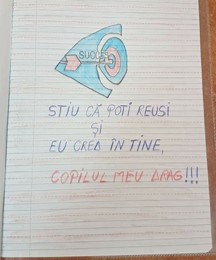 SUCCES
STIU CĂ POTI REUSI
ȘI
EU CRED ÎN TINE,
COPILUL MEU DRAG!!!